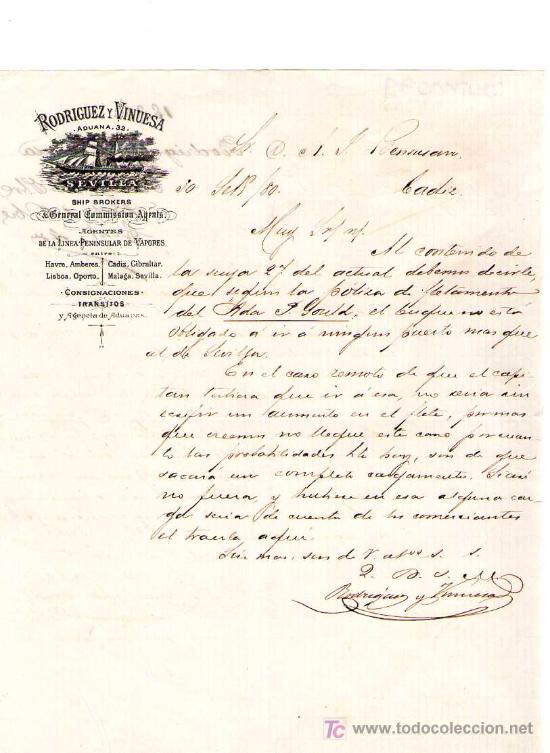 RODRIGUEZ Y VINUESA
ADUANA. 32.
SEVILLA
SHIP BROKERS
& General Commission Agents.
AGENTES
DE LA LINEA PENINSULAR DE VAPORES.
ENTRE
Havre, Amberes. Cadiz, Gibraltar.
Lisboa, Oporto. Malaga, Sevilla.
CONSIGNACIONES
TRANSITOS
y Agencia de Aduanas.
Sr. D. A. J. Bensusan
30 /80. Cadiz.
Muy Sr. n/.
Al contenido de
la suya 29 del actual debemos decirle,
que segun la poliza de fletamento
del Ada P. Gould, el buque no está
obligado á ir á ningun puerto mas que
al de Sevilla.
En el caso remoto de que el capi-
tan tubiera que ir á esa, no seria sin
exijir un aumento en el flete, por mas
que creemos no llegue este caso por cuan-
to las probabilidades hta hoy, son de que
sacará un completo cargamento. Si asi
no fuera, y hubiese en esa alguna car-
ga seria de cuenta de los comerciantes
el traerla aqui.
Sin mas, son de V. atos s. s.
Q. B. S. M.
Rodriguez y Vinuesa
Tc www.todocoleccion.net